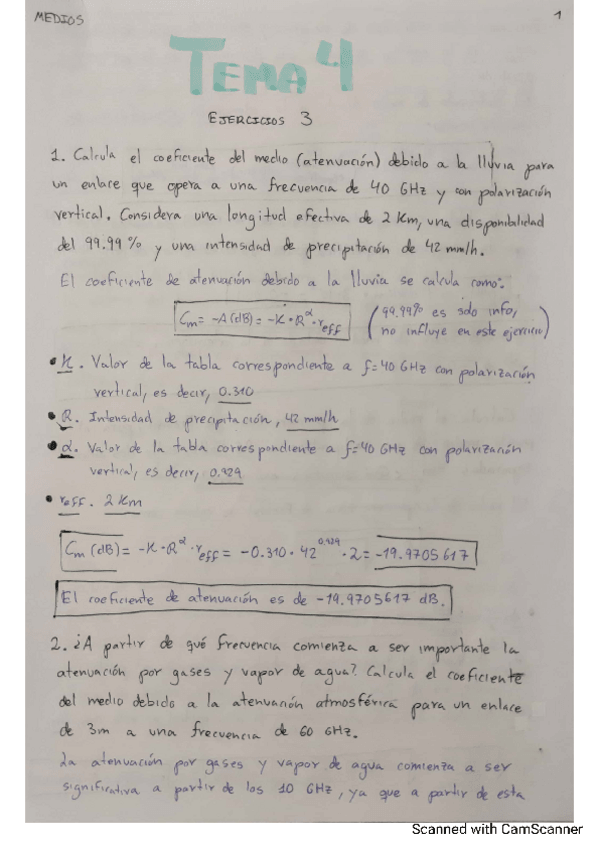 MEDIOS
1
TEMA 4
EJERCICIOS 3
1. Calcula el coeficiente del medio (atenuación) debido a la lluvia para
un enlace que opera a una frecuencia de 40 GHz y con polarización
vertical. Considera una longitud efectiva de 2 Km, una disponibilidad
del 99.99 % y una intensidad de precipitación de 42 mm/h.
El coeficiente de atenuación debido a la lluvia se calcula como:
Cm = -A(dB) = -K·R^α·reff (99.99% es solo info,
no influye en este ejercicio)
• K. Valor de la tabla correspondiente a f=40 GHz con polarización
vertical, es decir, 0.310
• R. Intensidad de precipitación, 42 mm/h
• α. Valor de la tabla correspondiente a f=40 GHz con polarización
vertical, es decir, 0.929
• reff. 2 Km
Cm (dB) = -K·R^α·reff = -0.310·42^0.929·2 = -19.9705617
El coeficiente de atenuación es de -19.9705617 dB.
2. ¿A partir de qué frecuencia comienza a ser importante la
atenuación por gases y vapor de agua? Calcula el coeficiente
del medio debido a la atenuación atmosférica para un enlace
de 3m a una frecuencia de 60 GHz.
La atenuación por gases y vapor de agua comienza a ser
significativa a partir de los 10 GHz, ya que a partir de esta
Scanned with CamScanner